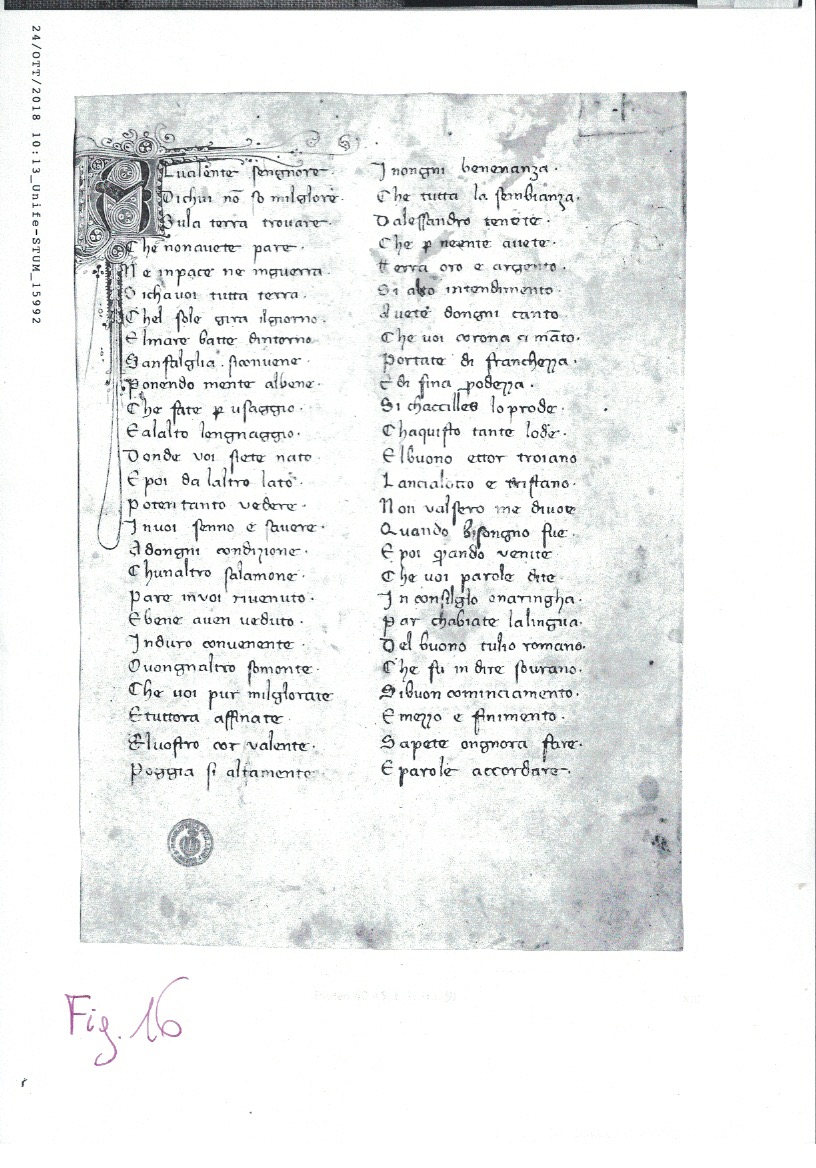 24/OTT/2018 10:13_Unife-STUM_15992
Al ualente sengnore
Dichui nõ so milglore
Sula terra trouare
Che nonauete pare
Ne inpace ne inguerra
Sichauoi tutta terra
Chel sole gira ilgiorno
Elmare batte dintorno
Sanfalglia siconuene
Ponendo mente albene
Che fate p usaggio
Ealalto lengnaggio
Donde voi siete nato
E poi da laltro lato
Poteti tanto vedere
Inuoi senno e sauere
Adongni condizione
Chunaltro salamone
Pare inuoi riuenuto
Ebene auen ueduto
Induro conuenente
Ouongnaltro somonte
Che voi pur milglorate
Etuttora affinate
Eluostro cor valente
Poggia si altamente
Inongni benenanza
Che tutta la sembianza
Dalessandro tenete
Che p neente auete
Terra oro e argento
Si alto intendimento
Auete dongni canto
Che voi corona e mãto
Portate di franchezza
E di fina podezza
Si chaccilles loprode
Chaquisto tante lode
Elbuono ettor troiano
Lancialotto e tristano
Non valsero me diuoe
Quando bisongno fue
E poi quando venite
Che voi parole dite
In consilglo onaringha
Par chabiate lalingua
Del buono tulio romano
Che fu in dire sourano
Sibuon cominciamento
Emezzo e finimento
Sapete ongnora fare
Eparole accordare
Fig. 16